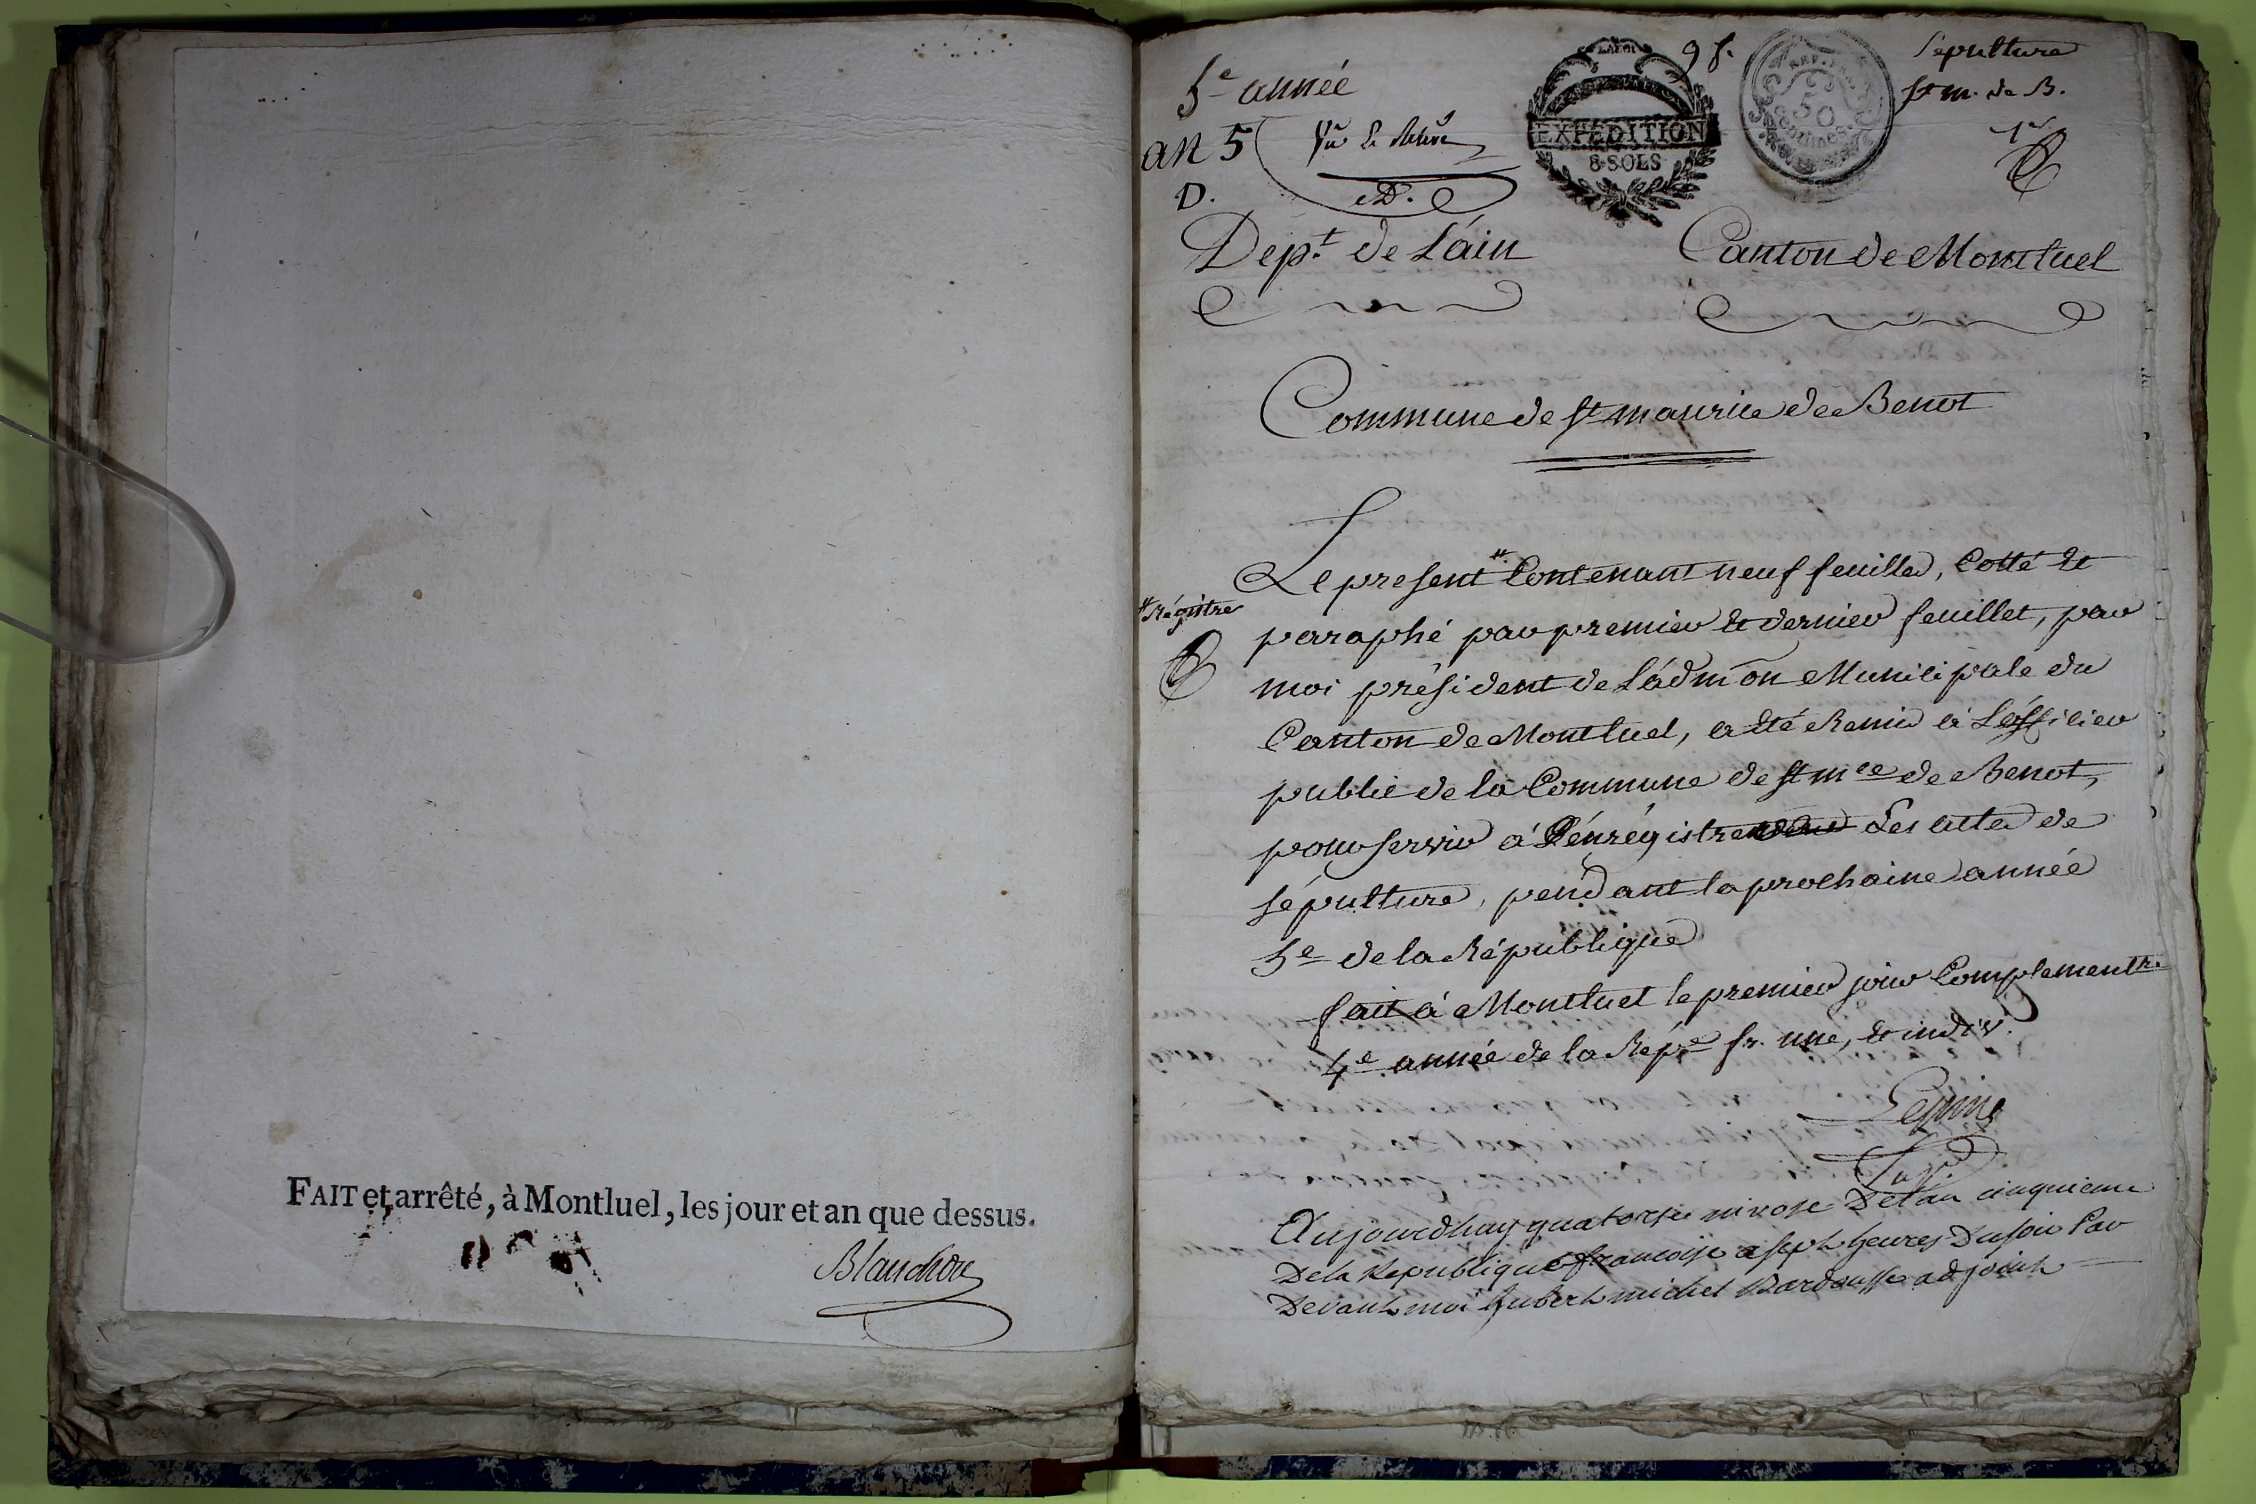 FAIT et arrêté, à Montluel, les jour et an que dessus.
Blanchon
5e année
9 f.
Sépulture
an 5
St m. de B.
1er
D.
D.
EXPÉDITION
8 SOLS
REP. FRA.
50
centimes
Dept. de L'áin
Canton de Montluel
Commune de St maurice de Benot
Le present # Contenant neuf feuilles, Cotté et
# Régistre
paraphé par premier et dernier feuillet, par
moi président de L'ádmon Municipale du
Canton de Montluel, a été Remis à L'officier
public de la Commune de St mce de Benot,
pour servir à Enrégistrer Les actes de
sépulture, pendant la prochaine année
5e de la République
fait à Montluel le premier jour Complementre.
4e année de la Répe fr. une, et indiv.
Aujourdhuy quatorse nivose De l'an cinquieme
De la Republique francoise a sept heures Du soir Par
Devant moi hubert michel Bardousse adjoint